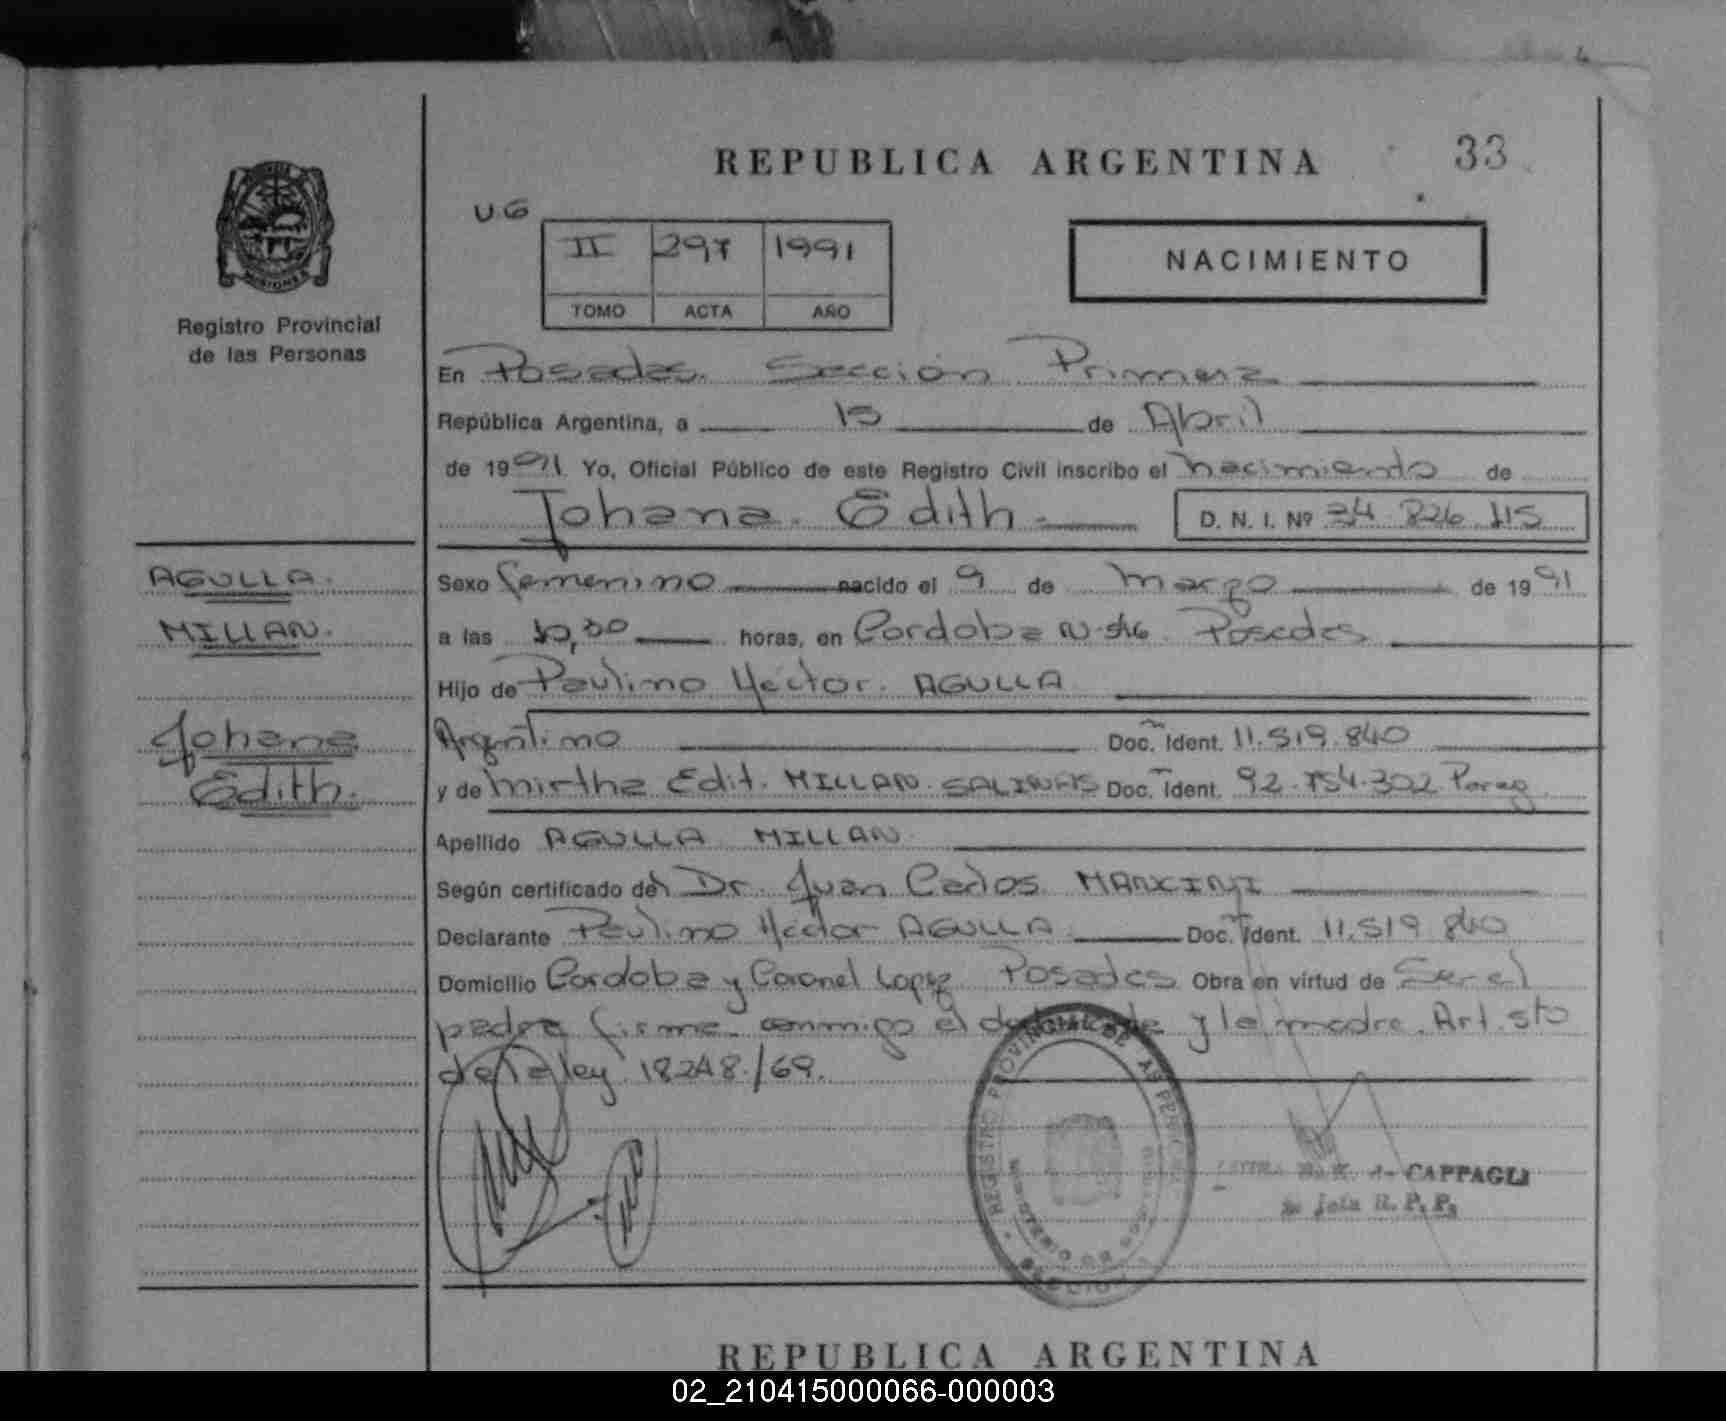 REPUBLICA ARGENTINA 33
UG
II 297 1991
TOMO ACTA AÑO
NACIMIENTO
MISIONES
Registro Provincial
de las Personas
En Posadas Sección Primera
República Argentina, a 15 de Abril
de 1991 Yo, Oficial Público de este Registro Civil inscribo el nacimiento de
Johana Edith D. N. I. Nº 34 826 115
AGULLA.
MILLAN.
Johana
Edith.
Sexo femenino nacido el 9 de marzo de 1991
a las horas, en Cordoba N 546 Posadas
Hijo de Paulino Héctor. AGULLA
Argentino Doc. Ident. 11.519.840
y de Mirtha Edit. MILLAN. SALINAS Doc. Ident. 92.754.302 Parag
Apellido AGULLA MILLAN.
Según certificado del Dr. Juan Carlos
Declarante Paulino Héctor AGULLA Doc. Ident. 11.519 840
Domicilio Cordoba y Coronel Lopez Posadas Obra en virtud de Ser el
padre firma conmigo el declarante y la madre. Art. 5to
de la ley 18248/69.
REGISTRO PROVINCIAL DE LAS PERSONAS
CAPPAGLI
Jefa R. P. P.
REPUBLICA ARGENTINA
02_210415000066-000003